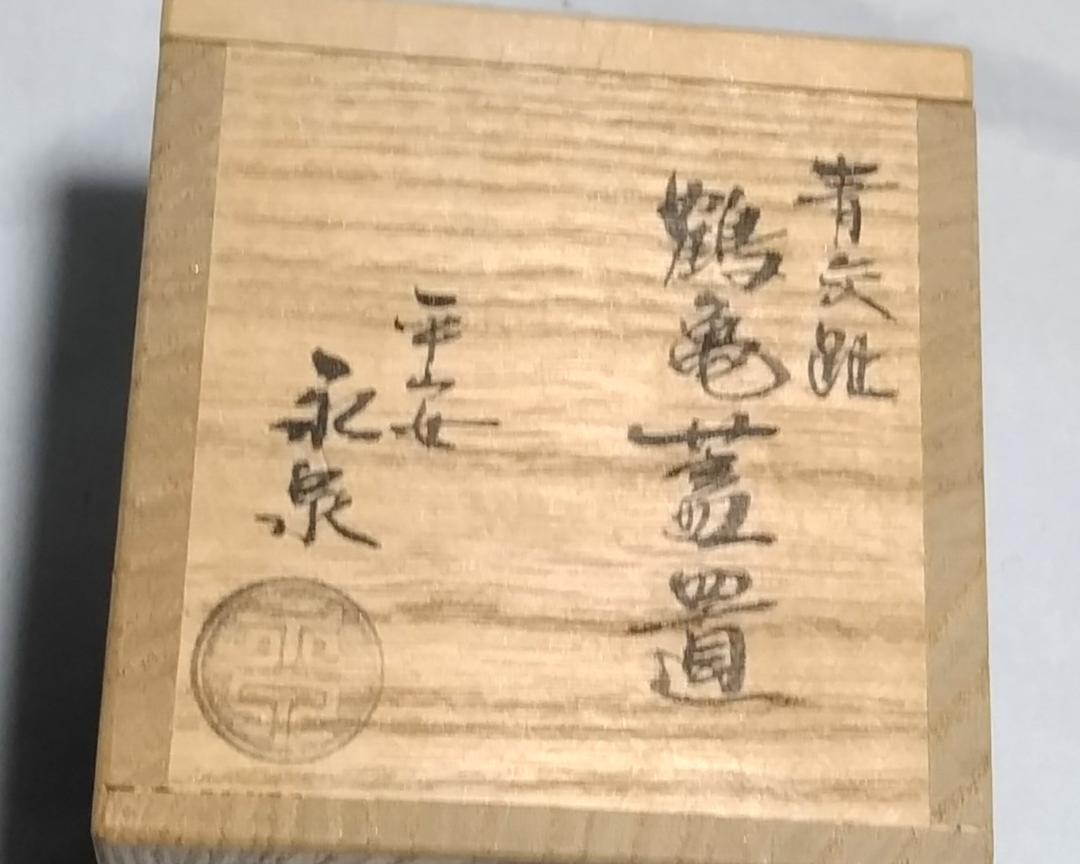 青交趾
鶴亀蓋置
平安
永泉